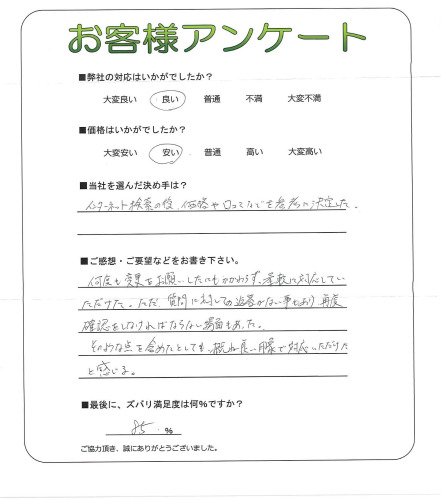 お客様アンケート
■弊社の対応はいかがでしたか？
大変良い 良い 普通 不満 大変不満
■価格はいかがでしたか？
大変安い 安い 普通 高い 大変高い
■当社を選んだ決め手は？
インターネット検索の後、価格や口コミなどを参考に決定した。
■ご感想・ご要望などをお書き下さい。
何度も変更をお願いしたにもかかわらず、柔軟に対応してい
ただけた。ただ、質問に対しての返答がない事もあり、再度
確認をしなければならない場面もあった。
そのような点を含めたとしても、概ね良い印象で対応いただけた
と感じる。
■最後に、ズバリ満足度は何％ですか？
85 %
ご協力頂き、誠にありがとうございました。